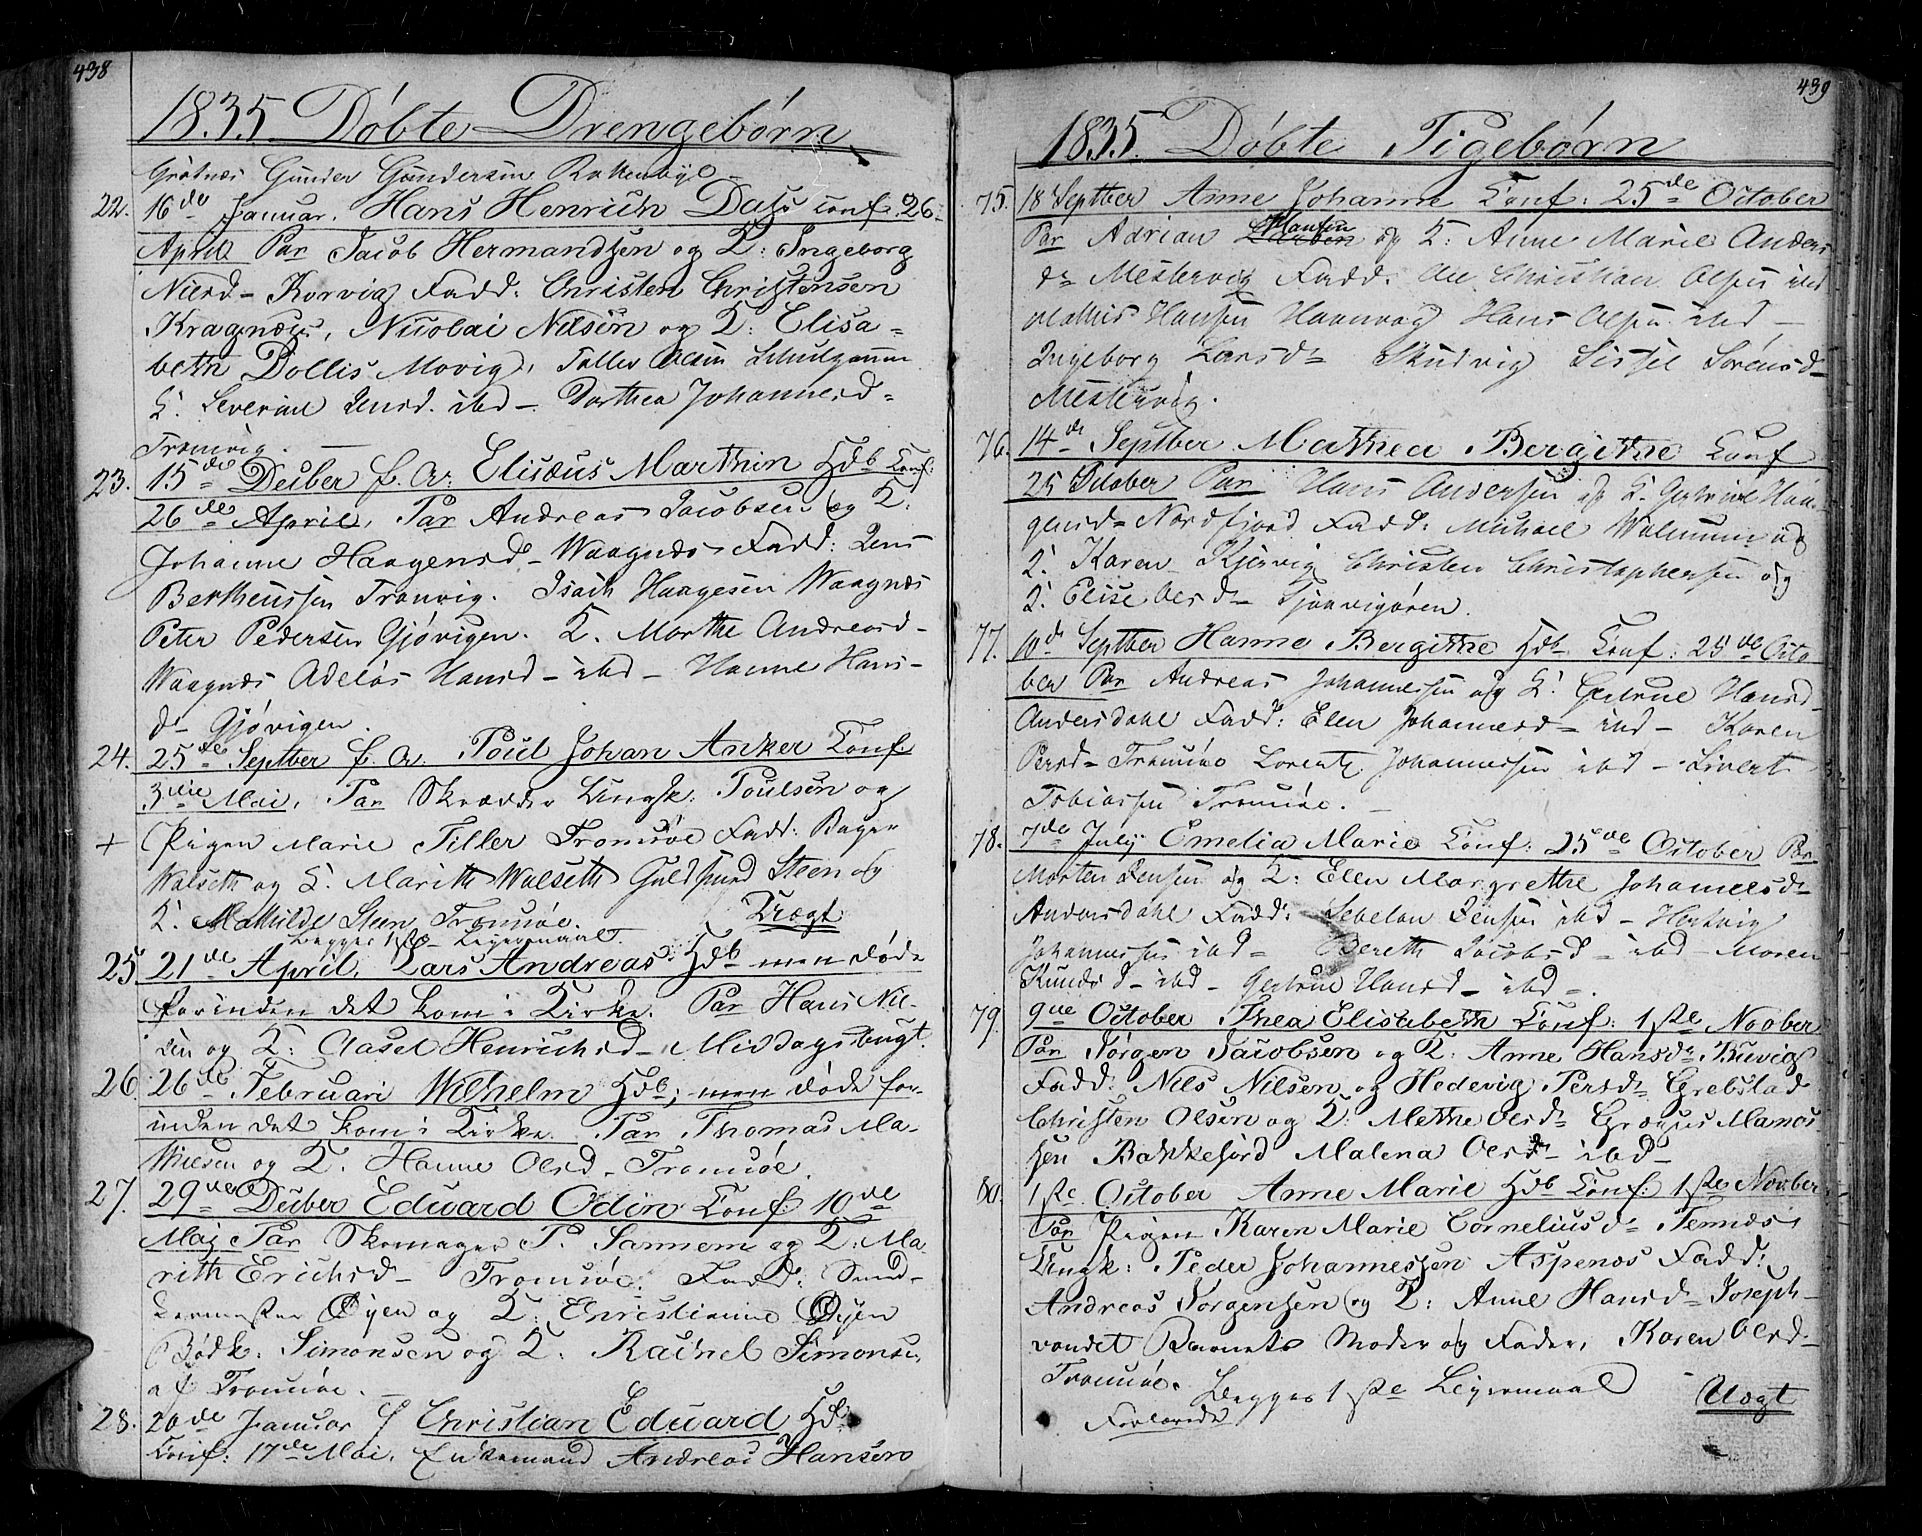 438
1835 Döbte Drengebörn
Grötnæs Gunder Gundersen
22. 16de Januar. Hans Henrich Dass conf. 26
April Par Jacob Hermandsen og K: Ingeborg
Nilsd– Korvig Fadd: Christen Christensen
Kragnæs, Nicolai Nilsen og K: Elisa=
beth Dollis Movig, Tollev Olsen
K. Severine Jensd. ibd – Dorthea Johannesd=
Tromvig. –
23. 15de Decber f. A. Elisæus Marthin Hdb Conf:
26de April, Par Andreas Jacobsen og K:
Johanne Haagensd– Waagnæs Fadd: Jens
Bertheussen Tromvig. Isach Haagesen Waagnæs
Peter Pedersen Gjövigen. K. Marthe Andreasd–
Waagnæs Adelös Hansd – ibd – Hanne Hans–
d– Gjövigen.
24. 25de Septber f. A. Poul Johan Anker Conf.
3die Mai, Par Skrædder Ungk: Poulsen og
+ Pigen Marie Tiller Tromsöe Fadd: Bager
Walseth og K. Marith Walseth Guldsmed Steen og
K. Mathilde Steen Tromsöe. Uægt
Begges 1ste Leiermaal.
25 21de April, Lars Andreas Hdb men döde
forinden det kom i Kirke. Par Hans Nil-
sen og K: Aasel Henrichsd– Middagsbugt.
26. 26de Februari Wilhelm Hdb; men döde for-
inden det kom i Kirke. Par Thomas Ma-
thiesen og K. Hanne Olsd– Tromsöe.
27. 29de Decber Edward Odin Conf: 10de
Maj Par Skomager P. Sannem og K: Ma-
rith Erichsd– Tromsöe. Fadd:
Öyen og K: Christianne Öyen
Bödk. Simonsen og K. Rachel Simonsen,
af Tromsöe. –
28. 20de Januar Christian Edward Hdb
Conf: 17de Mai, Enkemand Andreas Hansen
439
1835. Döbte Pigebörn
75. 18 Septber Anne Johanne Conf: 25de October
Par Adrian Hansen og K: Anne Marie Anders
d– Mestervig Fadd. Ole Christian Olsen ibd
Mathis Hansen Havnvag Hans Olsen ibd –
Ingeborg Larsd– Skudvig Sissel Sörensd–
Mestervig.
76. 14de Septber Mathea Bergithe Conf
25 October Par Hans Andersen og K. Gertrue Haa-
gensd– Nordfjord Fadd: Michael Walnum og
K. Karen Kjervig Christen Christophersen og
K. Elise Olsd –
77. 10de Septber Hanne Bergithe Hdb Conf: 25de Octo
ber Par Andreas Johannessen og K. Gertrue Hansd–
Andersdahl Fadd: Elen Johannesd– ibd – Karen
Persd– Tromsöe Lorentz Johannessen ibd – Sivert
Tobiassen Tromsöe. –
78. 7de July Emelia Marie Conf: 25de October Par
Morten Jensen og K: Elen Margrethe Johannesd–
Andersdahl Fadd: Jensen ibd – Hertvig
Johannessen ibd – Bereth Jacobsd – ibd – Maren
Knudsd – ibd – Gertrue Hansd – ibd –.
79. 9ne October Thea Elisabeth Conf: 1ste Novber
Par Jörgen Jacobsen og K: Anne Hansd– Buvig
Fadd: Nils Nilsen og Hedevig Persd– Grebstad
Christen Olsen og K: Methe Olsd– Grönnæs
sen Bakkefjord Malena Olsd– ibd–
80. 1ste October Anne Marie Hdb Conf: 1ste Novber
Par Pigen Karen Marie Corneliusd– Tennæs,
Ungk: Peder Johannessen Aspenæs Fadd:
Andreas Jörgensen og K: Anne Hansd– Joseph–
vandet Barnets Moder og Fader, Karen Olsd–
Tromsöe. Begges 1ste Leiermaal Uægt
Forlovede